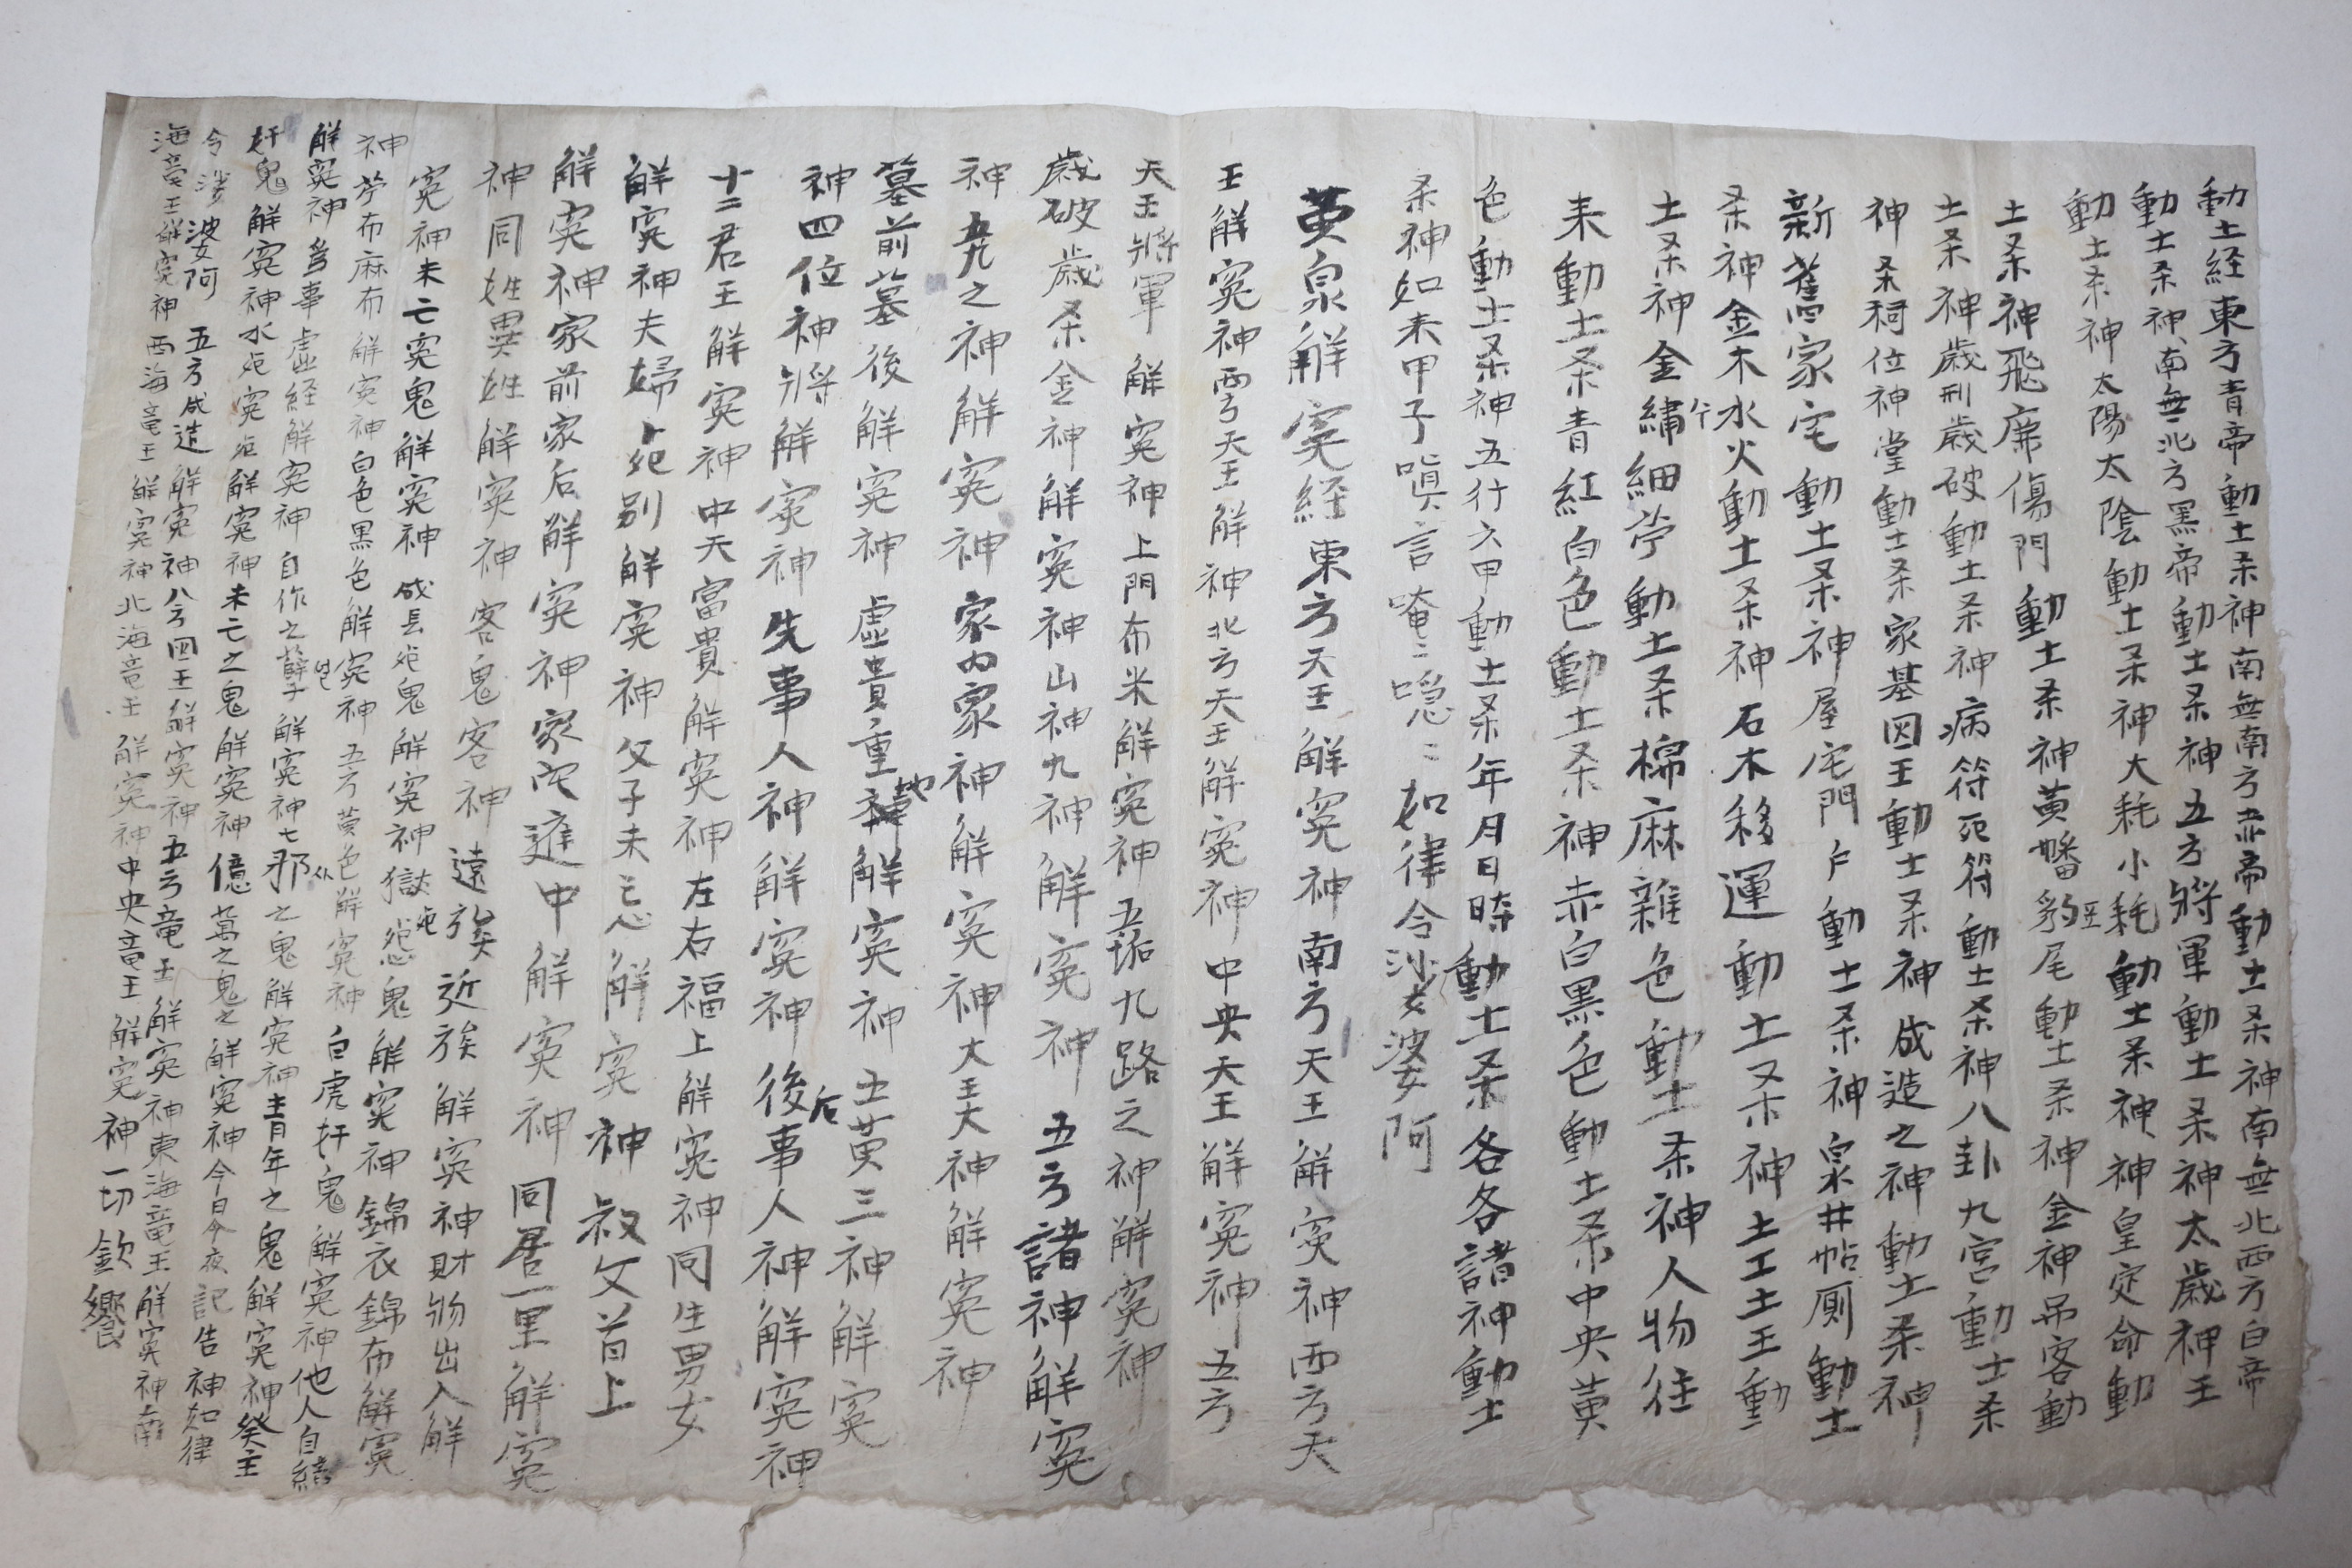 動土経東方青帝動土杀神南無南方赤帝動土杀神南無北西方白帝
動土杀神南無北方黑帝動土杀神五方將軍動土杀神太歲神王
動土杀神太陽太陰動土杀神大耗小耗動土杀神神皇定命動
土杀神飛廉傷門動土杀神黃幡豹尾動土杀神金神吊客動
土杀神歲刑歲破動土杀神病符死符動土杀神八卦九宮動土杀
神杀祠位神堂動土杀家基四王動土杀神成造之神動土杀神
新舊家宅動土杀神屋宅門戶動土杀神泉井帖厠動土
杀神金木水火動土杀神石木移運動土杀神土工土王動
土杀神金繡細苧動土杀棉麻雜色動土杀神人物往
来動土杀青紅白色動土杀神赤白黑色動土杀中央黃
色動土杀神五行六甲動土杀年月日時動土杀各各諸神動土
杀神如来甲子嗔言唵〻噁〻如律令沙婆阿
黃泉解寃経東方天王解寃神南方天王解寃神西方天
王解寃神西方天王解神北方天王解寃神中央天王解寃神五方
天王將軍解寃神上門布米解寃神五垢九路之神解寃神
歲破歲杀金神解寃神山神九神解寃神五方諸神解寃
神九之神解寃神家內家神解寃神大王大神解寃神
墓前墓後解寃神虛貴重地解寃神土黃三神解寃
神四位神將解寃神先事人神解寃神後后事人神解寃神
十二君王解寃神中天富貴解寃神左右福上解寃神同生男女
解寃神夫婦死别解寃神父子未忘解寃神叔父首上
解寃神家前家后解寃神家宅進中解寃神同居一里解寃
神同姓異姓解寃神客鬼客神遠族近族解寃神財物出入解
寃神未亡寃鬼解寃神成長死鬼解寃神獄死怨鬼解寃神錦衣錦布解寃
神苧布麻布解寃神白色黑色解寃神五方黃色解寃神白虎奸鬼解寃神他人自結
解寃神多事虛経解寃神自作之孽얼子解寃神七邪之鬼解寃神靑年之鬼解寃神癸主
奸鬼解寃神水死寃死解寃神未亡之鬼解寃神億萬之鬼之解寃神今日今夜記告神如律
令 婆阿 五方成造解寃神八方四王解寃神五方竜王解寃神東海竜王解寃神南
海竜王解寃神西海竜王解寃神北海竜王解寃神中央竜王解寃神一切欽饗